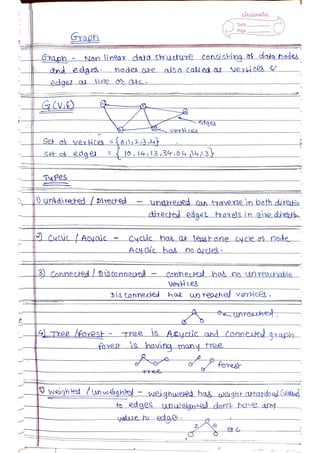 classmate
Date
Page
Graph
Graph - Non linear data structure consisting of data nodes
and edges. nodes are also called as vertices &
edges as line or arc.
G(V,E)
edges
vertices
Set of vertices = {0,1,2,3,4}
set of edges = {10,14,13,34,04,
Types
1) undirected / Directed - undirected can traverse in both
directed edges travels in give
2) Cyclic / Acyclic - Cyclic has at least one cycle of node
Acyclic has no cycles.
3) Connected / Disconnected - connected has no unreachable
vertices
Disconnected has unreached vertices.
unreached.
4) Tree / forest - Tree is Acyclic and connected graph
forest is having many tree
tree
forest
5) weighted / unweighted - weighted has weight attatched
to edges unweighted don't have any
value to edge.